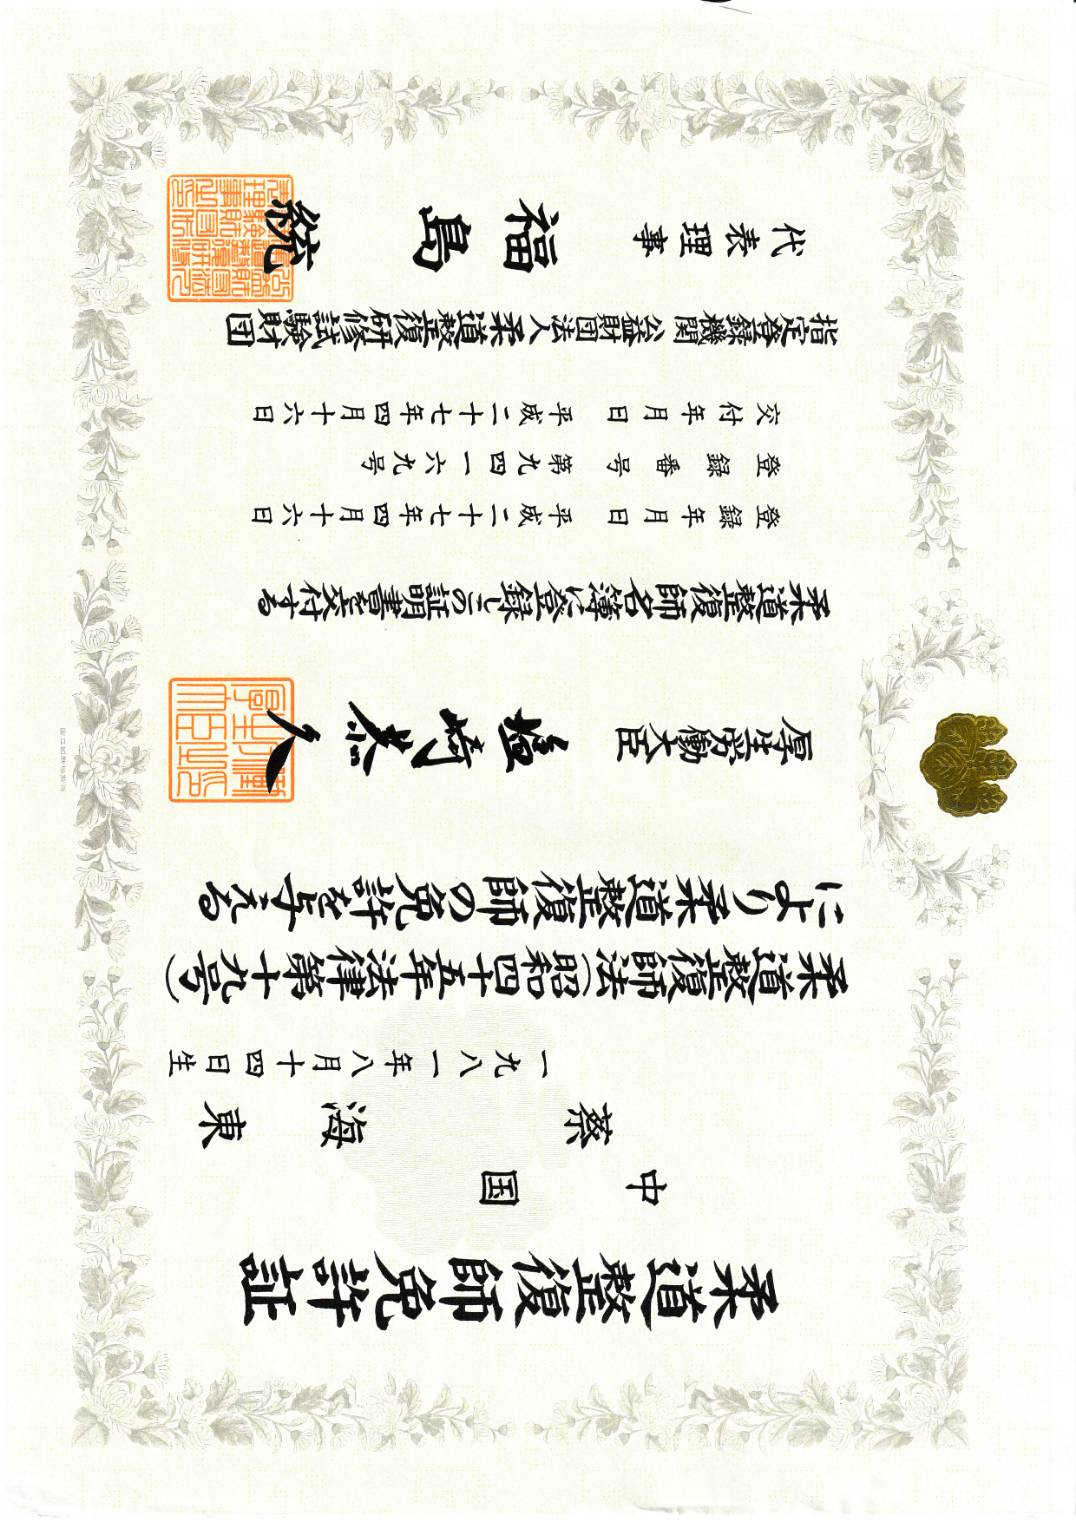 柔道整復師免許証
中国
蔡海東
一九八一年八月十四日生
柔道整復師法(昭和四十五年法律第十九号)
により柔道整復師の免許を与える
厚生労働大臣 塩崎恭久
柔道整復師名簿に登録しこの証明書を交付する
登録年月日 平成二十七年四月十六日
登録番号 第九四一六九号
交付年月日 平成二十七年四月十六日
指定登録機関 公益財団法人柔道整復研修試験財団
代表理事 福島統